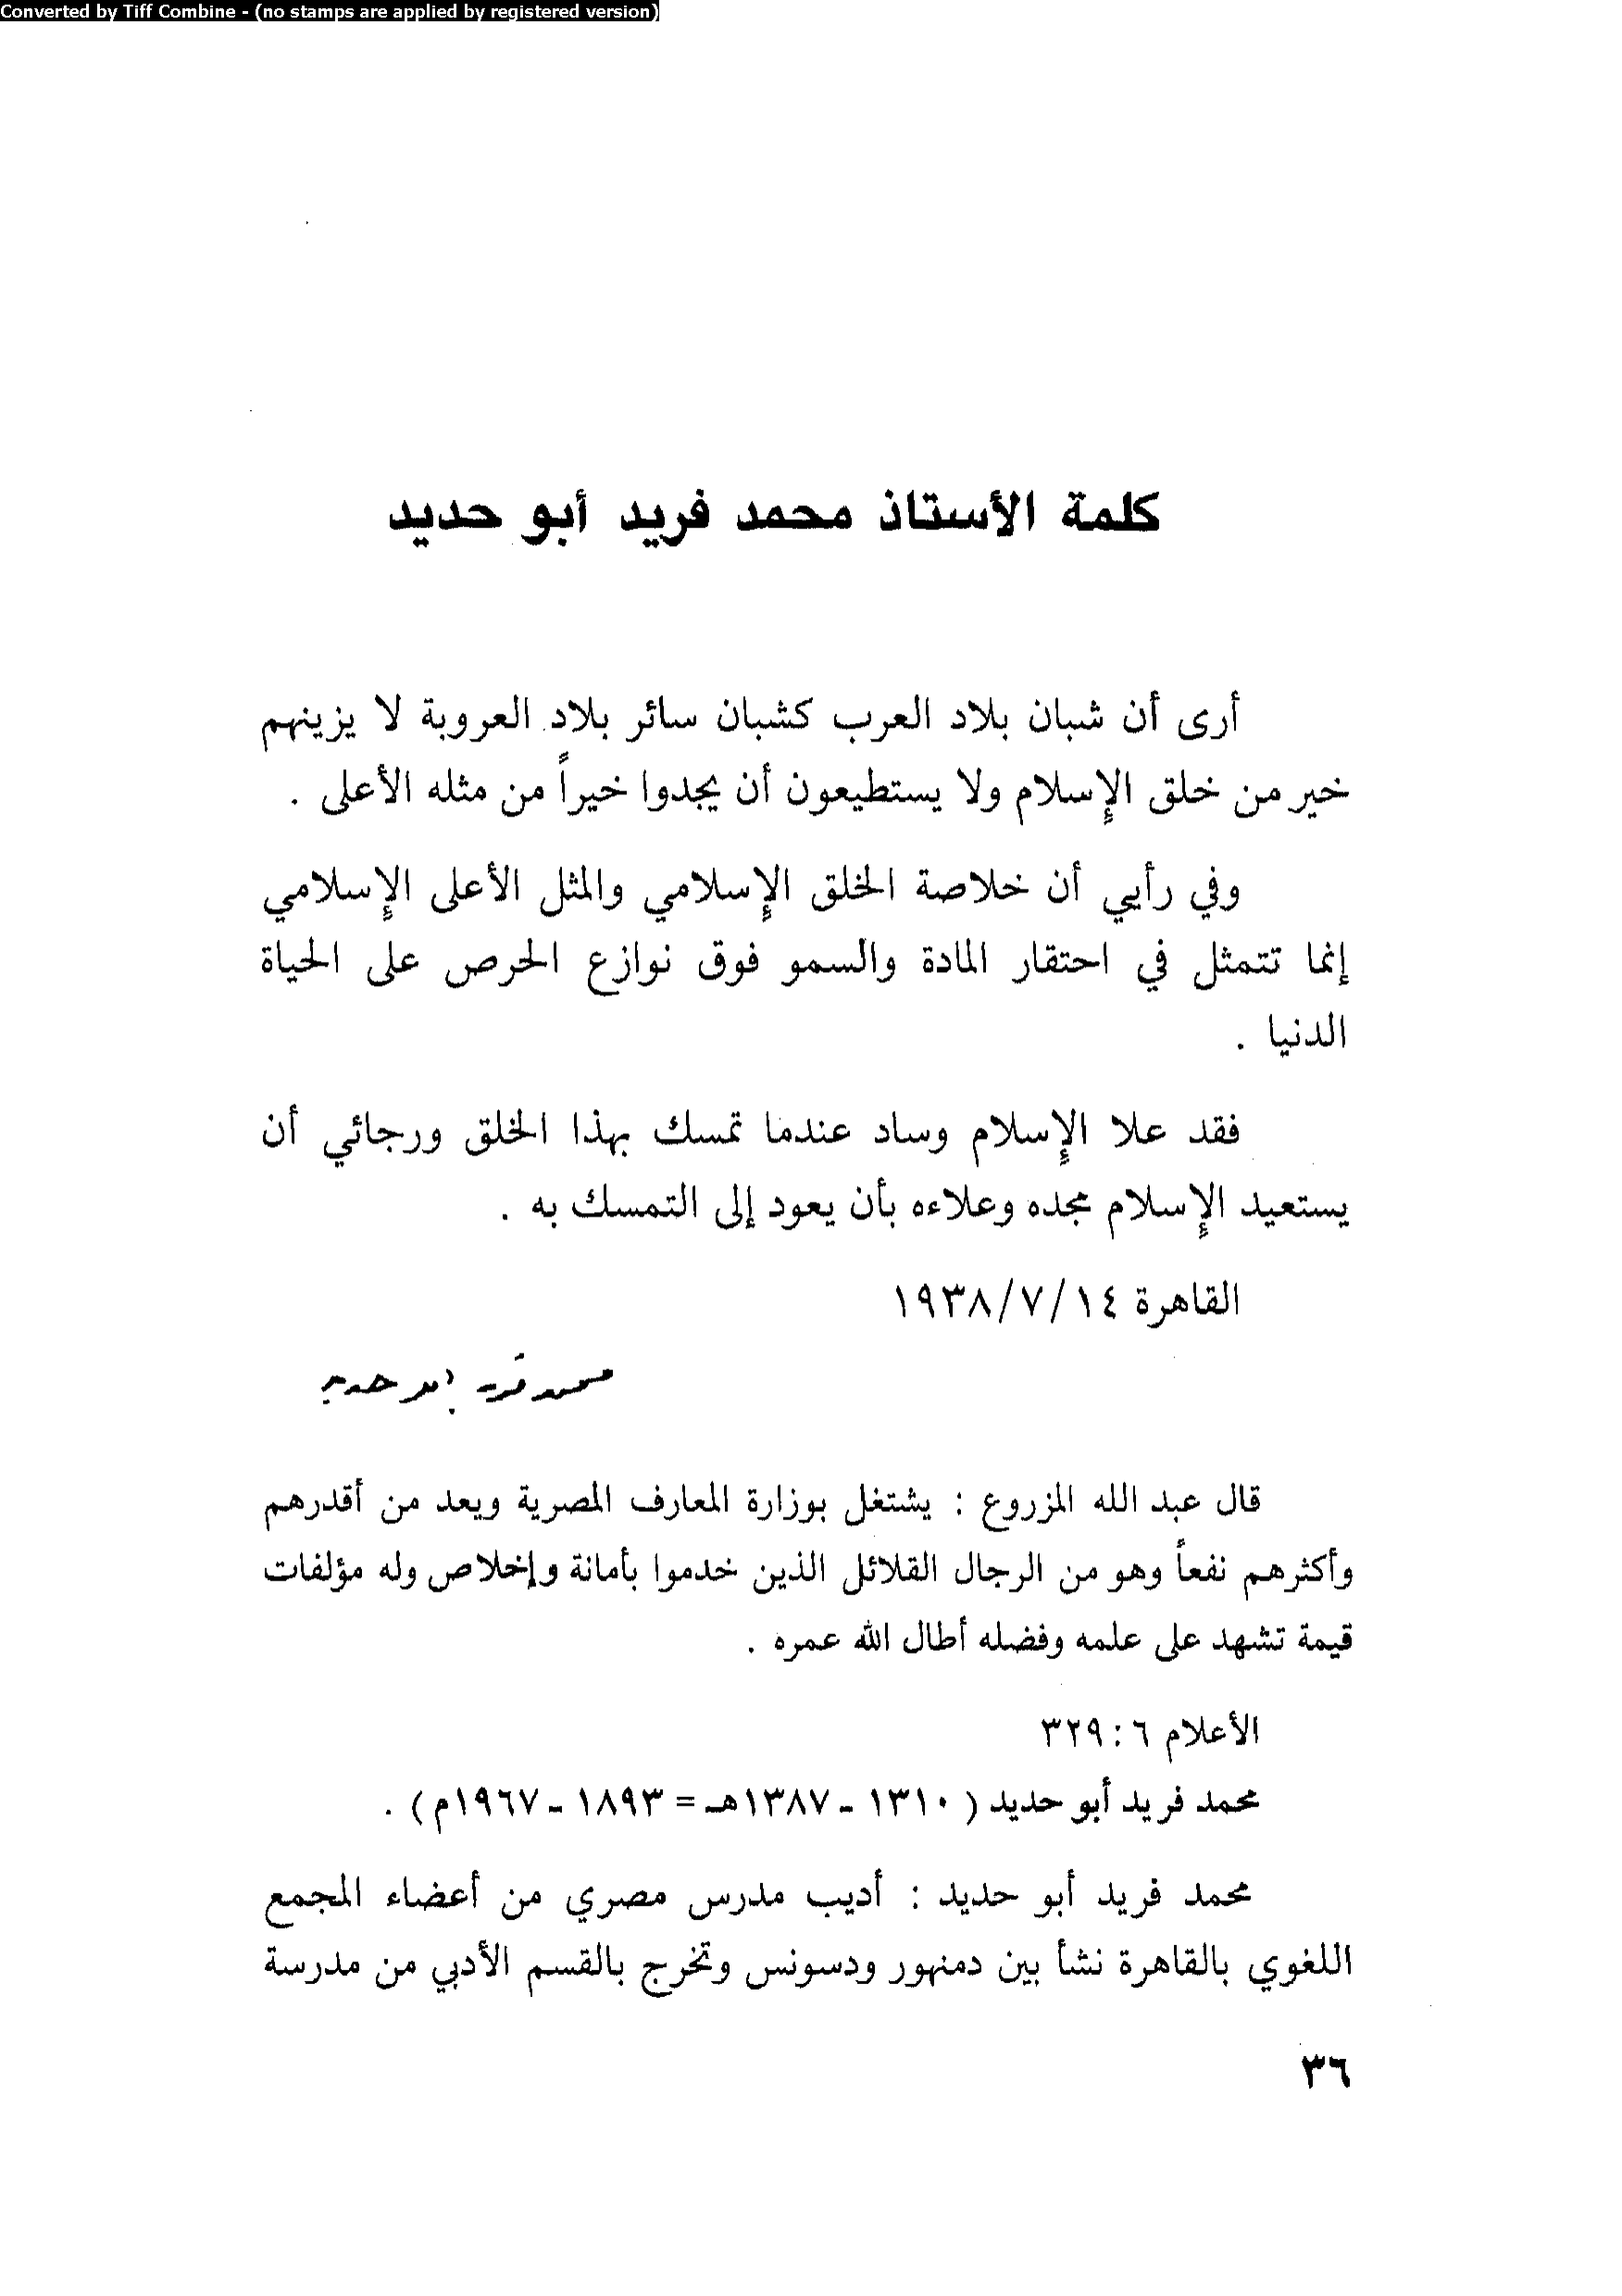 Converted by Tiff Combine - (no stamps are applied by registered version)
كلمة الأستاذ محمد فريد أبو حديد
أرى أن شبان بلاد العرب كشبان سائر بلاد العروبة لا يزينهم
خير من خلق الإسلام ولا يستطيعون أن يجدوا خيراً من مثله الأعلى .
وفي رأيي أن خلاصة الخلق الإسلامي والمثل الأعلى الإسلامي
إنما تتمثل في احتقار المادة والسمو فوق نوازع الحرص على الحياة
الدنيا .
فقد علا الإسلام وساد عندما تمسك بهذا الخلق ورجائي أن
يستعيد الإسلام مجده وعلاءه بأن يعود إلى التمسك به .
القاهرة ١٤/٧/١٩٣٨
محمد فريد أبو حديد
قال عبد الله المزروع : يشتغل بوزارة المعارف المصرية ويعد من أقدرهم
وأكثرهم نفعاً وهو من الرجال القلائل الذين خدموا بأمانة وإخلاص وله مؤلفات
قيمة تشهد على علمه وفضله أطال الله عمره .
الأعلام ٦ : ٣٢٩
محمد فريد أبو حديد ( ١٣١٠ - ١٣٨٧هـ = ١٨٩٣ - ١٩٦٧م ) .
محمد فريد أبو حديد : أديب مدرس مصري من أعضاء المجمع
اللغوي بالقاهرة نشأ بين دمنهور ودسونس وتخرج بالقسم الأدبي من مدرسة
٣٦